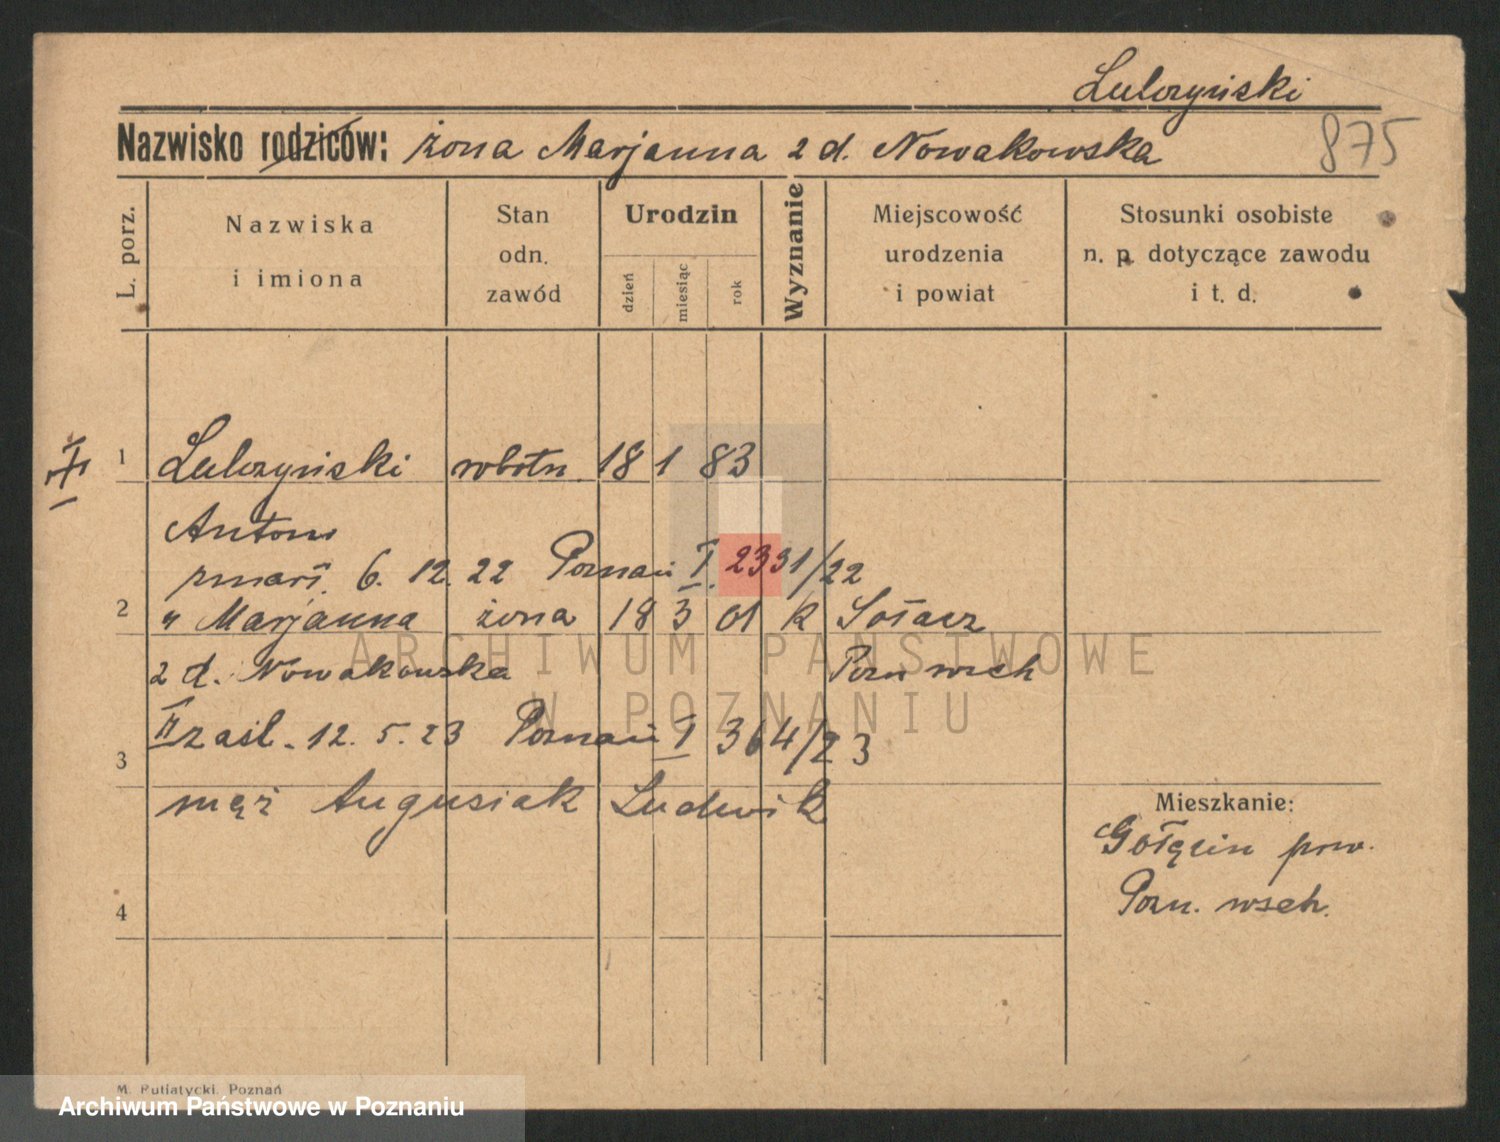 Lulczyński
Nazwisko rodziców: żona Marjanna 2 d. Nowakowska 875
L. porz.
Nazwiska
i imiona
Stan
odn.
zawód
Urodzin
dzień
miesiąc
rok
Wyznanie
Miejscowość
urodzenia
i powiat
Stosunki osobiste
n. p. dotyczące zawodu
i t. d.
1 Lulczyński robotn. 18 1 83
Antoni
zmarł. 6. 12. 22 Poznań I. 2331/22
2 " Marjanna żona 18 3 01 k Sołacz
2 d. Nowakowska Pozn wsch
II zaśl. 12. 5. 23 Poznań I 364/23
3
mąż Augusiak Ludwik
Mieszkanie:
Gołęcin pow.
Pozn. wsch.
4
M. Putiatycki, Poznań
ARCHIWUM PAŃSTWOWE
W POZNANIU
Archiwum Państwowe w Poznaniu